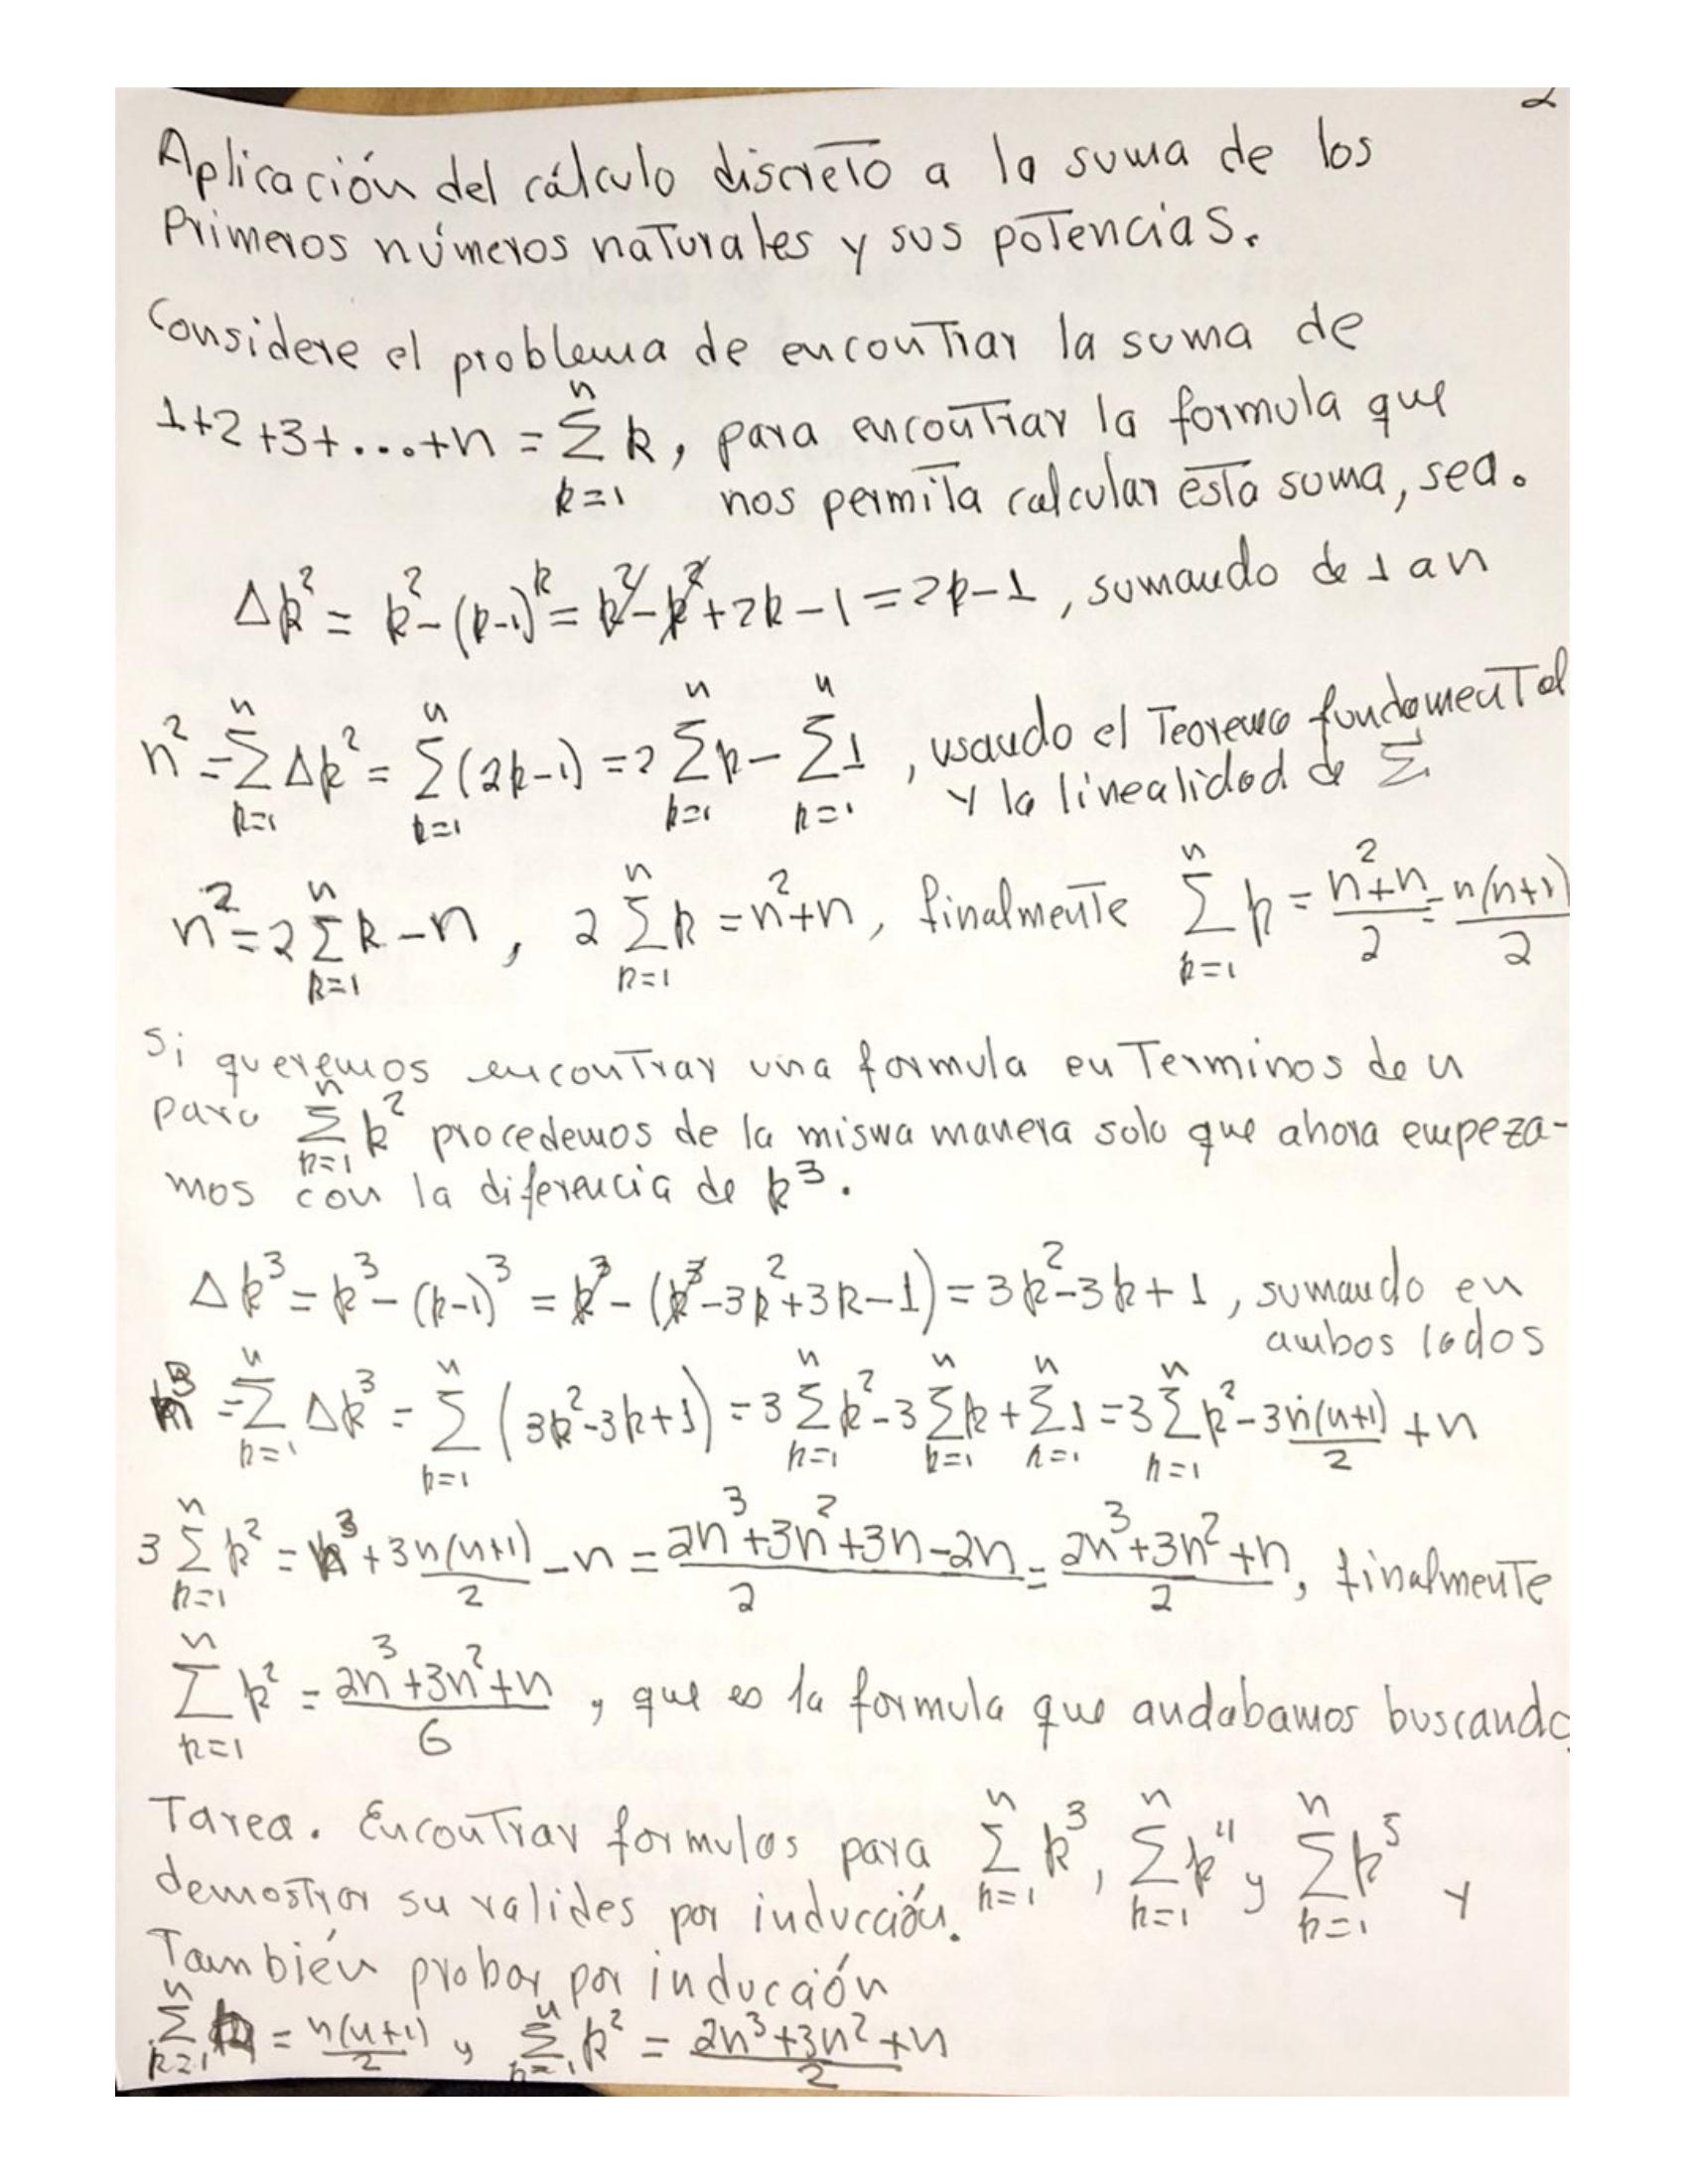 2
Aplicación del cálculo discreto a la suma de los
Primeros números naturales y sus potencias.
Considere el problema de encontrar la suma de
1+2+3+...+n = \sum_{k=1}^{n} k, para encontrar la formula que
nos permita calcular esta suma, sea.
Δk^2 = k^2-(k-1)^k = k^2-k^2+2k-1 = 2k-1, sumando de 1 a n
n^2 = \sum_{k=1}^{n} Δk^2 = \sum_{k=1}^{n} (2k-1) = 2 \sum_{k=1}^{n} k - \sum_{k=1}^{n} 1, usando el Teorema fundamental
y la linealidad de Σ
n^2 = 2 \sum_{k=1}^{n} k - n, 2 \sum_{k=1}^{n} k = n^2+n, finalmente \sum_{k=1}^{n} k = \frac{n^2+n}{2} = \frac{n(n+1)}{2}
Si queremos encontrar una formula en Terminos de n
para \sum_{k=1}^{n} k^2 procedemos de la misma manera solo que ahora empeza-
mos con la diferencia de k^3.
Δk^3 = k^3-(k-1)^3 = k^3-(k^3-3k^2+3k-1) = 3k^2-3k+1, sumando en
ambos lados
n^3 = \sum_{k=1}^{n} Δk^3 = \sum_{k=1}^{n} (3k^2-3k+1) = 3 \sum_{k=1}^{n} k^2 - 3 \sum_{k=1}^{n} k + \sum_{k=1}^{n} 1 = 3 \sum_{k=1}^{n} k^2 - 3\frac{n(n+1)}{2} + n
3 \sum_{k=1}^{n} k^2 = n^3 + 3\frac{n(n+1)}{2} - n = \frac{2n^3+3n^2+3n-2n}{2} = \frac{2n^3+3n^2+n}{2}, finalmente
\sum_{k=1}^{n} k^2 = \frac{2n^3+3n^2+n}{6}, que es la formula que andabamos buscando
Tarea. Encontrar formulas para \sum_{k=1}^{n} k^3, \sum_{k=1}^{n} k^4 y \sum_{k=1}^{n} k^5 y
demostrar su valides por inducción.
También probar por inducción
\sum_{k=1}^{n} k = \frac{n(n+1)}{2} y \sum_{k=1}^{n} k^2 = \frac{2n^3+3n^2+n}{2}